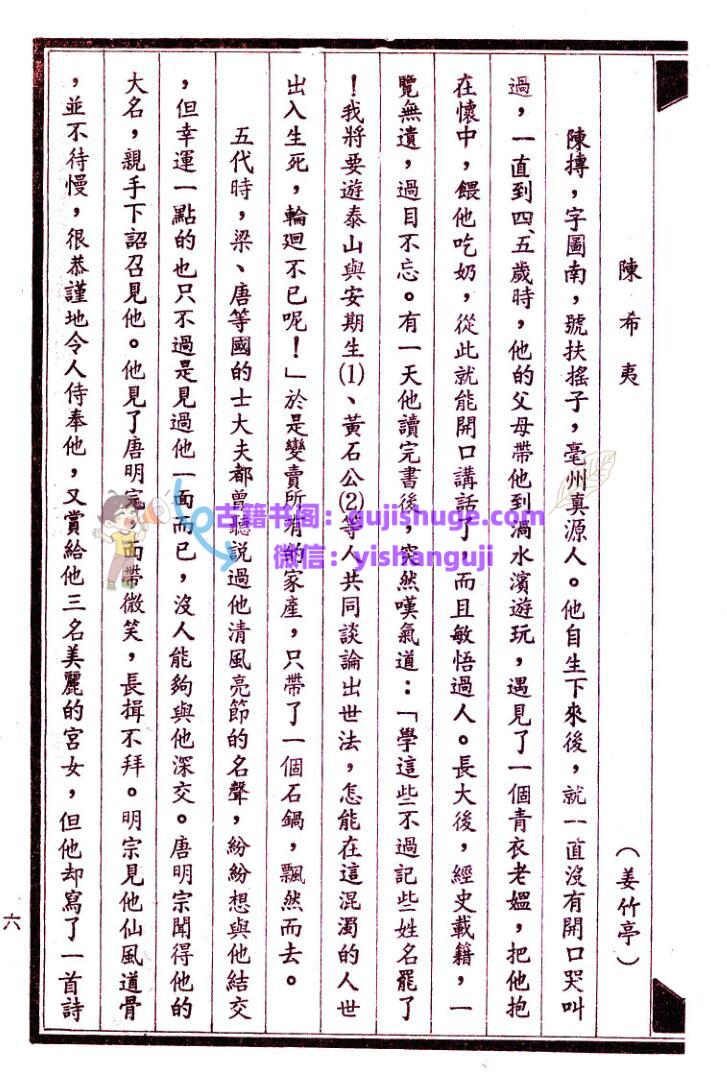 陳希夷
（姜竹亭）
陳摶，字圖南，號扶搖子，亳州真源人。他自生下來後，就一直沒有開口哭叫
過，一直到四、五歲時，他的父母帶他到渦水濱遊玩，遇見了一個青衣老嫗，把他抱
在懷中，餵他吃奶，從此就能開口講話了，而且敏悟過人。長大後，經史載籍，一
覽無遺，過目不忘。有一天他讀完書後，突然嘆氣道：「學這些不過記些姓名罷了
！我將要遊泰山與安期生⑴、黃石公⑵等人共同談論出世法，怎能在這混濁的人世
出入生死，輪迴不已呢！」於是變賣所有的家產，只帶了一個石鍋，飄然而去。
五代時，梁、唐等國的士大夫都曾聽說過他清風亮節的名聲，紛紛想與他結交
，但幸運一點的也只不過是見過他一面而已，沒人能夠與他深交。唐明宗聞得他的
大名，親手下詔召見他。他見了唐明宗面帶微笑，長揖不拜。明宗見他仙風道骨
，並不待慢，很恭謹地令人侍奉他，又賞給他三名美麗的宮女，但他却寫了一首詩
六
古籍书阁：gujishuge.com
微信：yishanguji